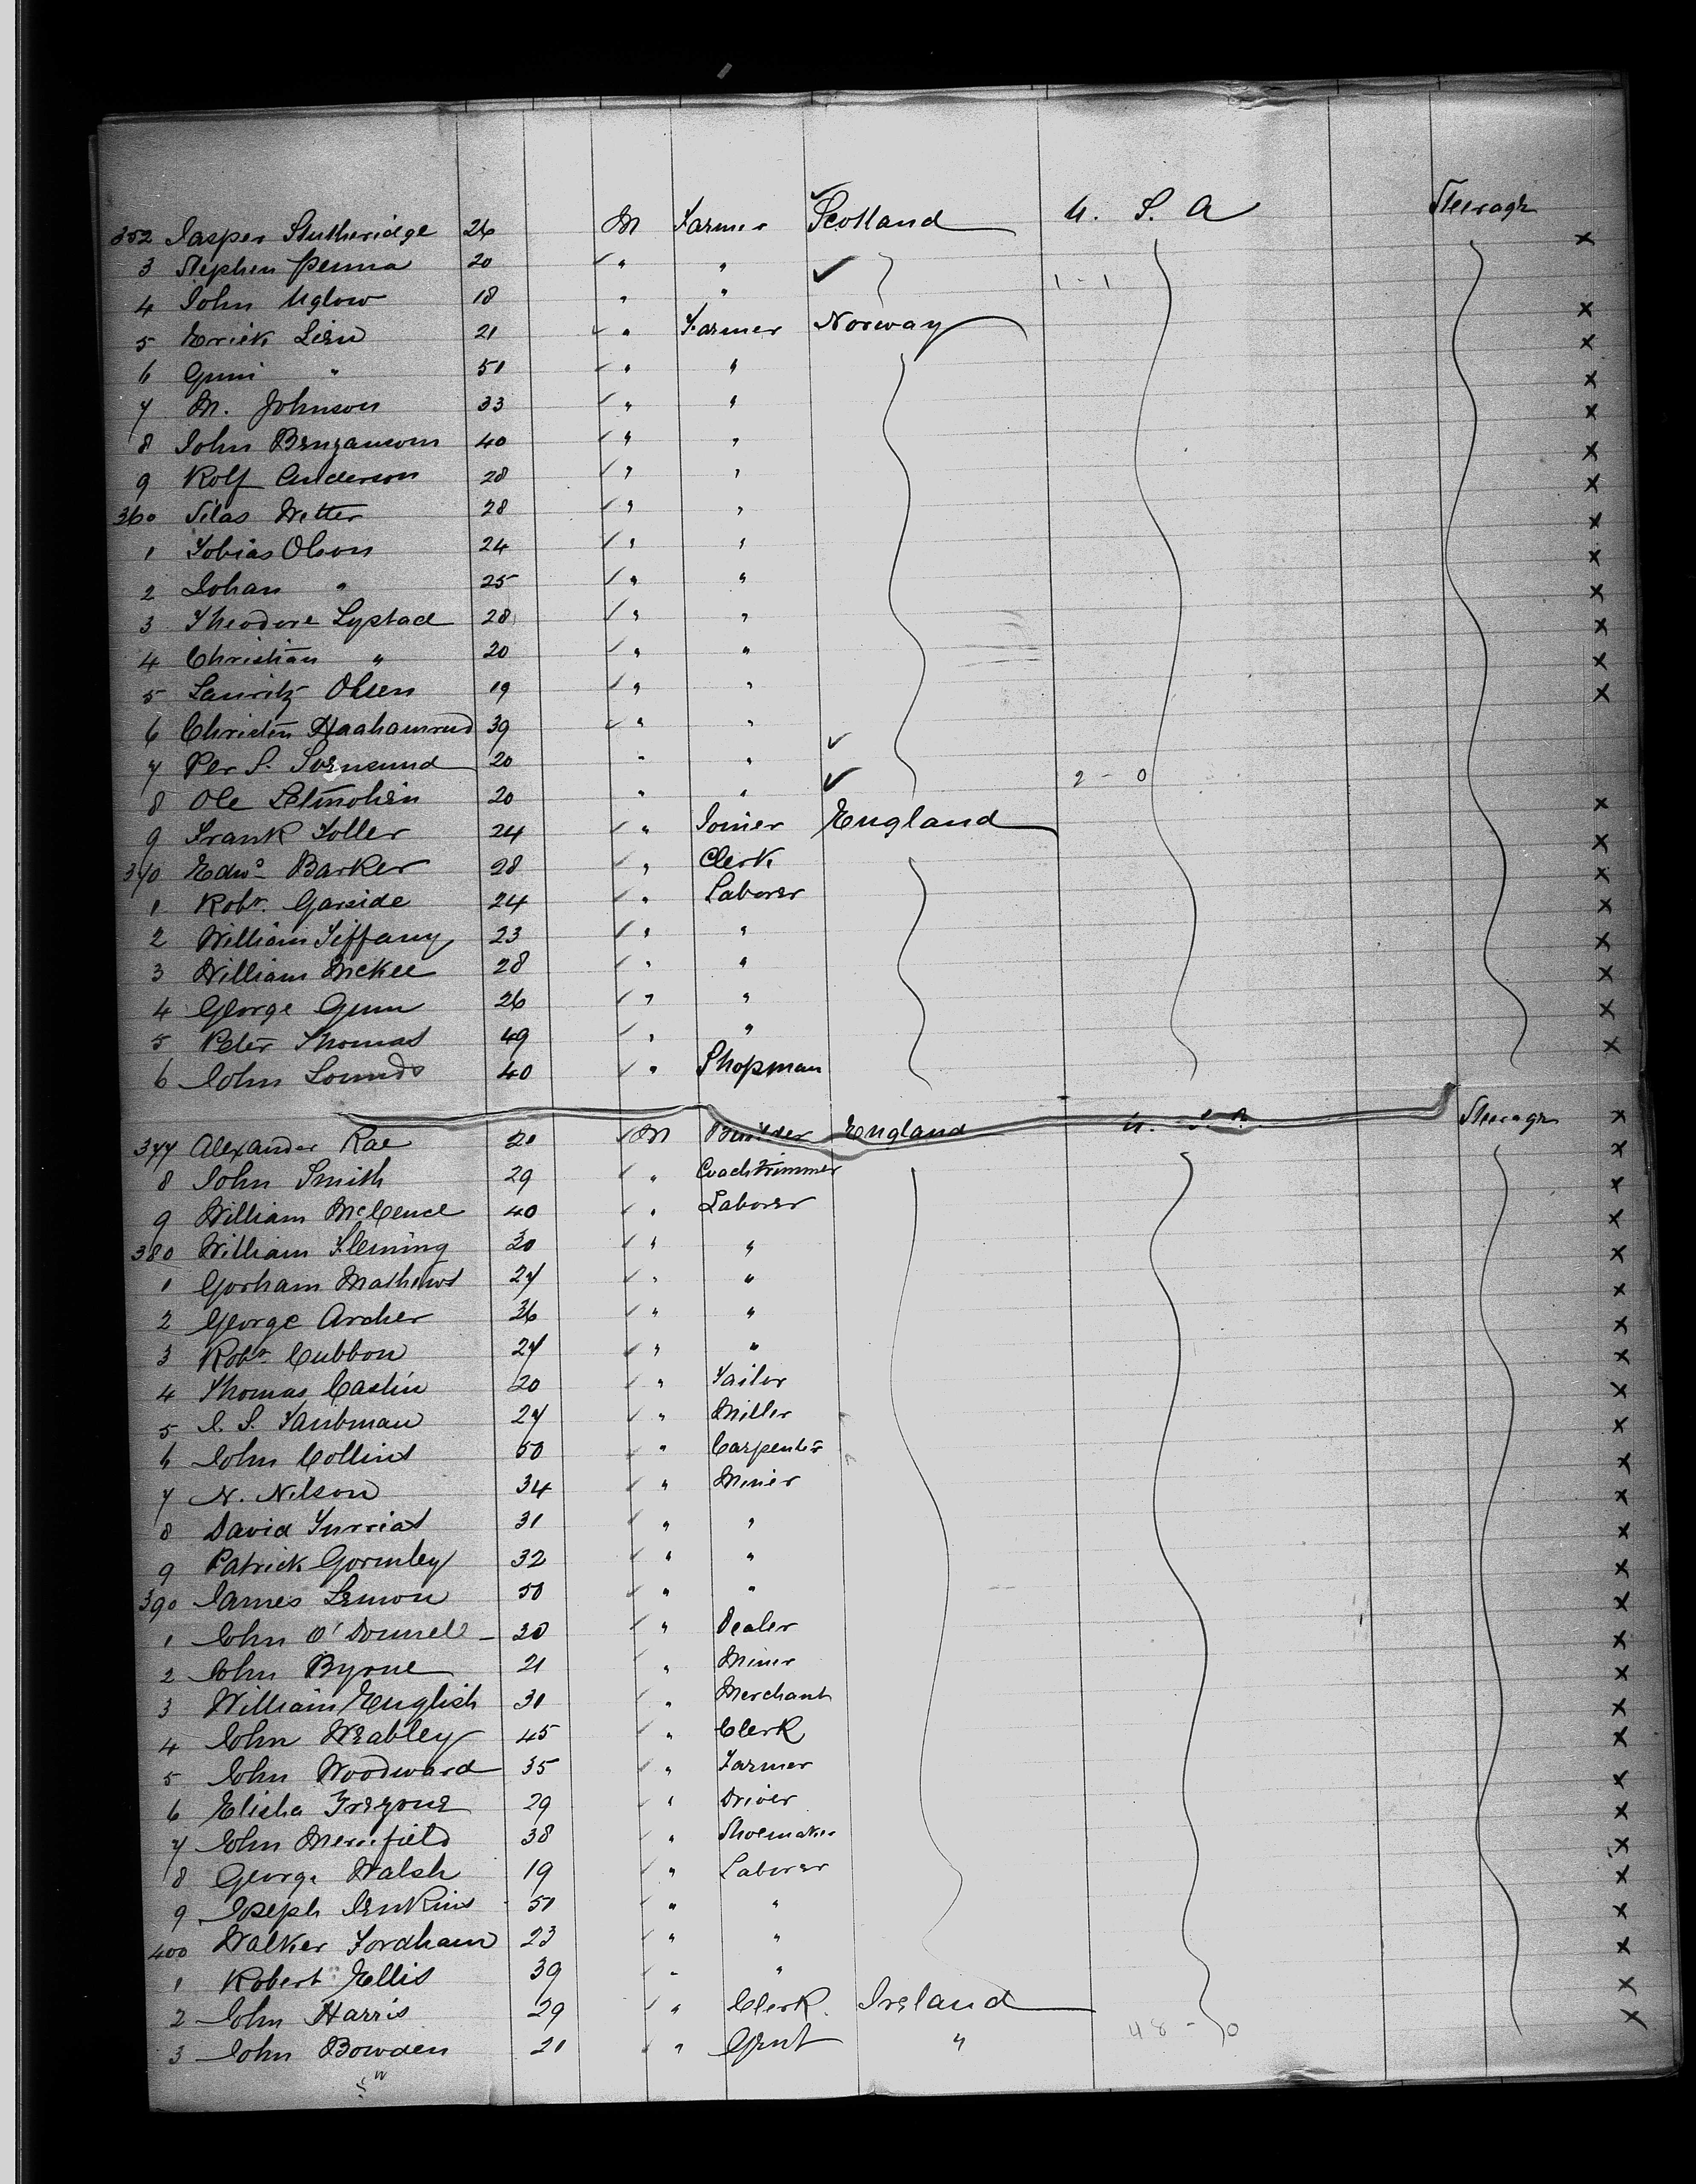 352 Jasper Stutheridge 26 M Farmer Scotland U. S. A Steerage
3 Stephen Penna 20 " "
1-1
4 John Uglow 18 " "
5 Errick Lien 21 " Farmer Norway
6 Guni " 50 " "
7 M. Johnson 33 " "
8 John 40 " "
9 Rolf Anderson 28 " "
360 Silas Wetter 28 " "
1 Tobias Olson 24 " "
2 Johan " 25 " "
3 Theodore Lystad 28 " "
4 Christian " 20 " "
5 Lauritz Olsen 19 " "
6 Christen 39 " "
7 Per S. 20 " "
2-0
8 Ole 20 " "
9 Frank Toller 24 " Joiner England
370 Edwd Barker 28 " Clerk
1 Robt. Garside 24 " Laborer
2 William Tiffany 23 " "
3 William McKee 28 " "
4 George Gunn 26 " "
5 Peter Thomas 49 " "
6 John Lounds 40 " Shopman
377 Alexander Rae 20 M Builder England U. S. A. Steerage
8 John Smith 29 " Coachtrimmer
9 William 40 " Laborer
380 William Fleming 30 " "
1 Gorham Mathews 27 " "
2 George Archer 36 " "
3 Robt. Cubbon 27 " "
4 Thomas Castin 20 " Tailor
5 J. S. Taubman 27 " Miller
6 John Collins 50 " Carpenter
7 N. Nilson 34 " Miner
8 David 31 " "
9 Patrick Gormley 32 " "
390 James Lemon 50 " "
1 John O'Donnel 30 " Dealer
2 John Byrne 21 " Miner
3 William English 30 " Merchant
4 John Weabley 45 " Clerk
5 John Woodward 35 " Farmer
6 Elisha 29 " Driver
7 John Merrifield 38 " Shoemaker
8 George Walsh 19 " Laborer
9 Joseph Jenkins 50 " "
400 Walker Fordham 23 " "
1 Robert Ellis 39 " "
2 John Harris 29 " Clerk Ireland
48-0
3 John Bowden 20 " Gent "